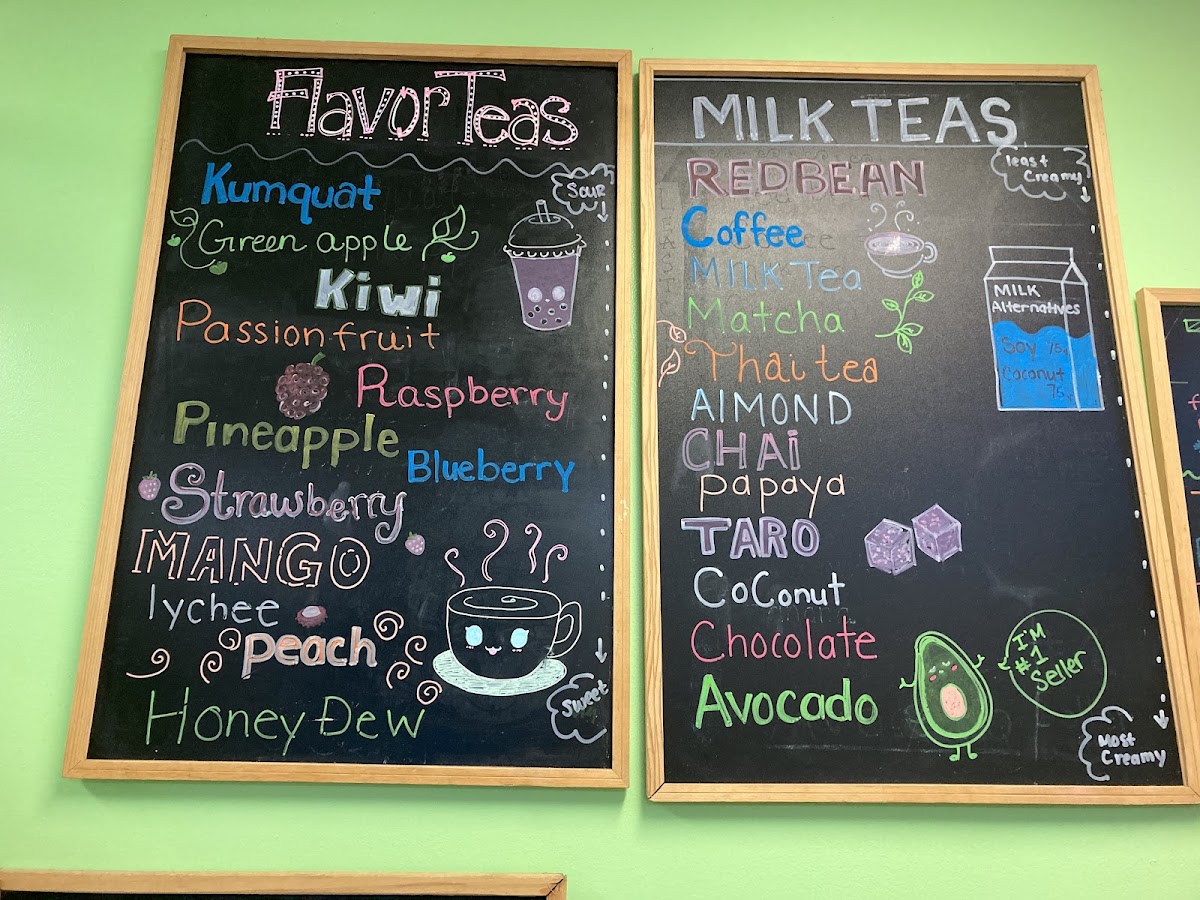 Flavor Teas
Kumquat
Sour
Green apple
Kiwi
Passionfruit
Raspberry
Pineapple
Blueberry
Strawberry
MANGO
lychee
peach
Honey Dew
Sweet
MILK TEAS
least
Creamy
REDBEAN
Coffee
MILK Tea
MILK
Alternatives
Soy 75¢
Coconut
75¢
Matcha
Thai tea
AlMOND
CHAi
papaya
TARO
CoConut
Chocolate
Avocado
I'M
#1
Seller
Most
Creamy